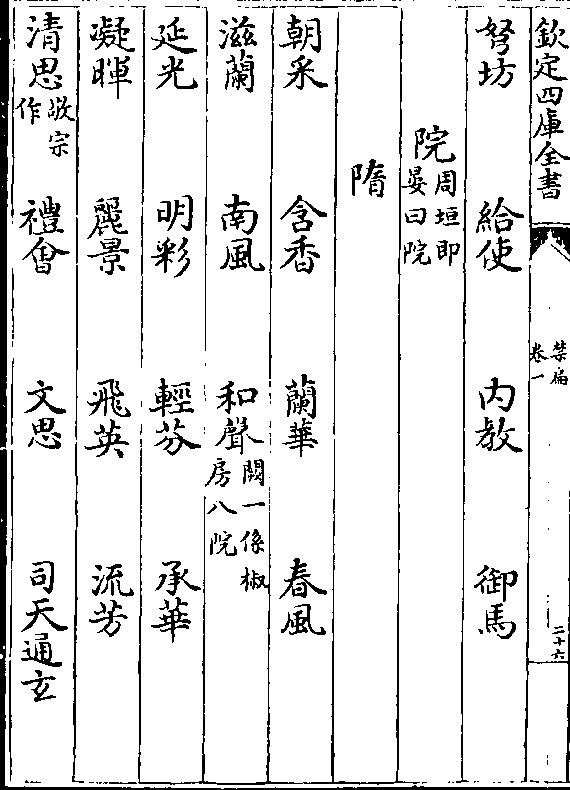 欽定四庫全書 禁扁卷一 二十六
弩坊 給使 内教 御馬
院 周垣即晏曰院
隋
朝采 含香 蘭華 春風
滋蘭 南風 和聲 闕一係椒房八院
延光 明彩 輕芬 承華
凝暉 麗景 飛英 流芳
清思 敬宗作 禮會 文思 司天通玄